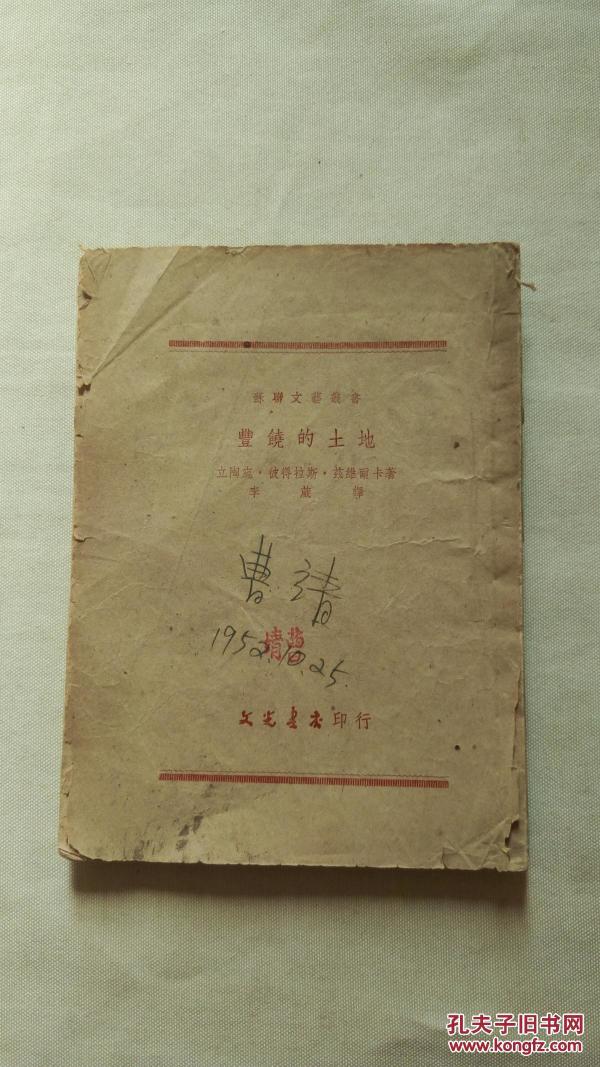 蘇聯文藝叢書
豐饒的土地
立陶宛·彼得拉斯·茲維爾卡著
李葳譯
曹清
1952.10.25.
文光書店印行
孔夫子旧书网
www.kongfz.com